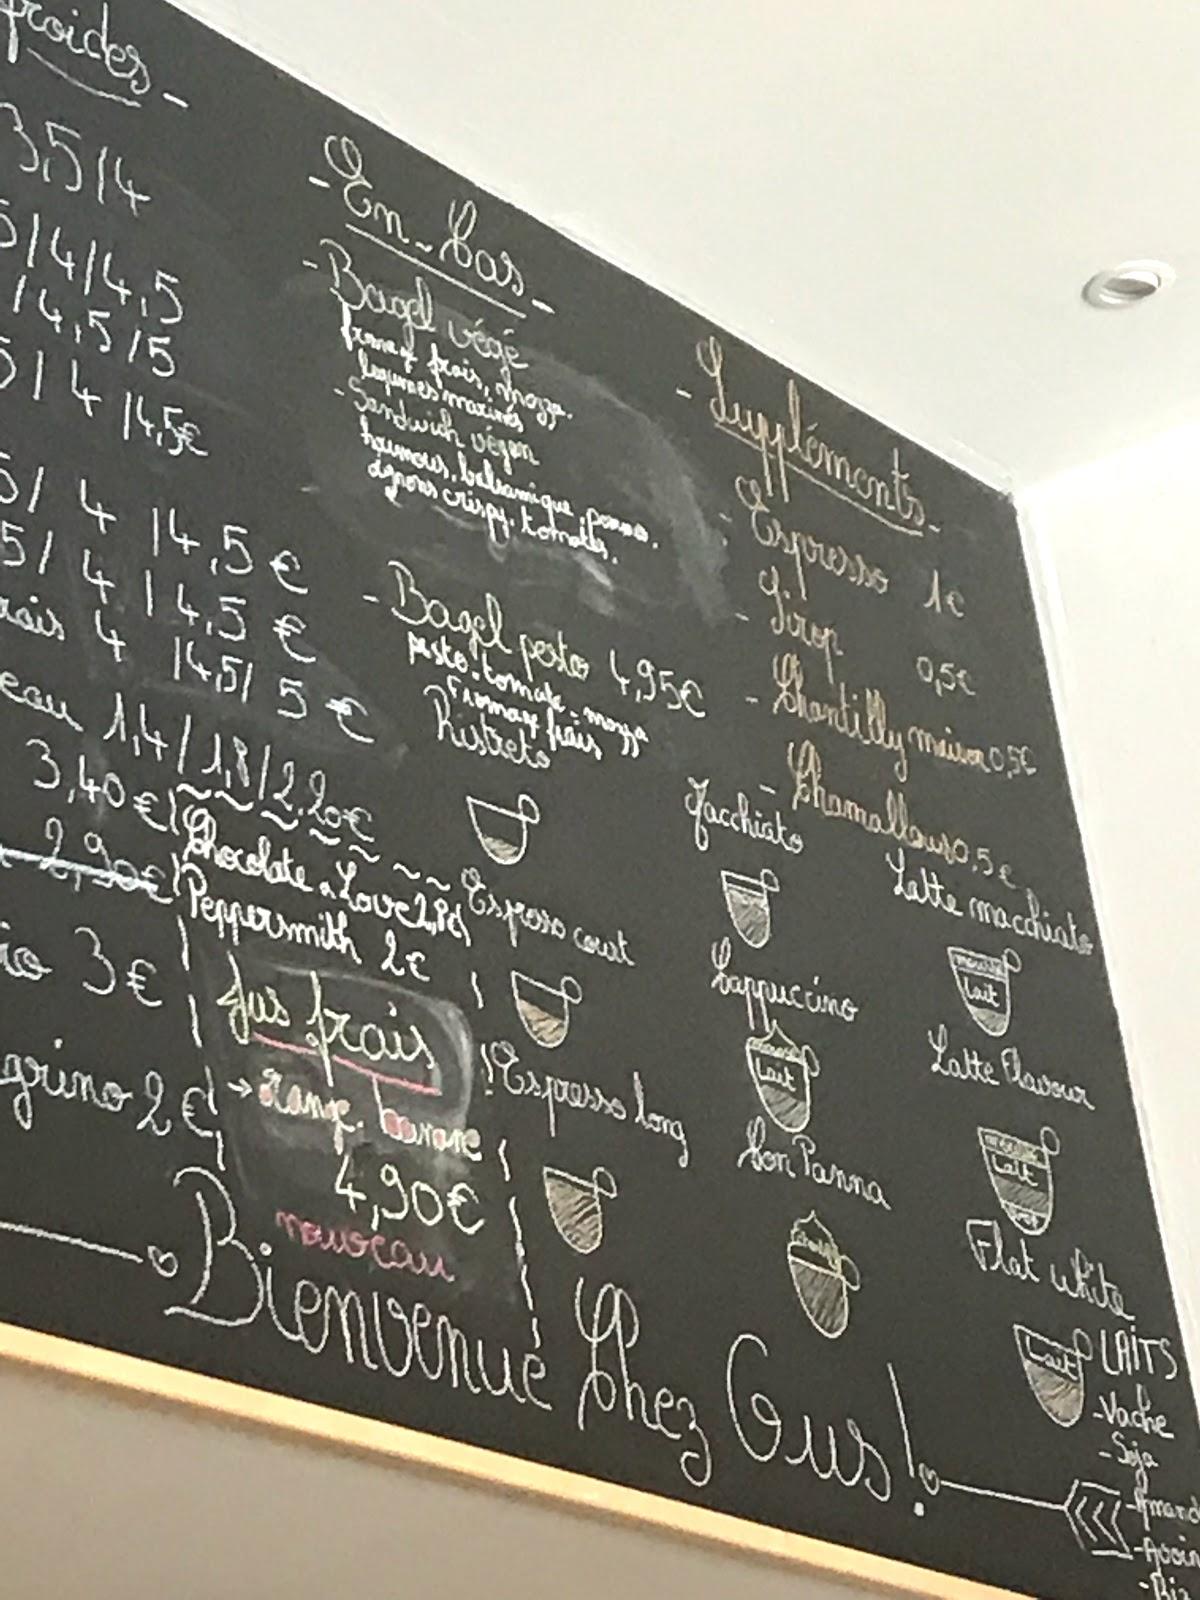 froides -
3,5/4
5/4/4,5
/4,5/5
5/4/4,5€
5/ 4 /4,5 €
5/ 4 /4,5 €
rais 4 /4,5/ 5 €
eau 1,4/1,8/2,20€
3,40€
2,90€
3€
grino 2€
- En-Cas -
- Bagel végé
frais, mozza.
légumes marinés
- Sandwich végan
houmous, balsamique, pomme.
oignons crispy. tomates.
- Bagel pesto 4,95€
pesto. tomate. mozza
fromay frais
Chocolate n Love
Peppersmith 2€
Jus frais
→ Orange. banane
4,90€
nouveau
Ristreto
Espresso court
Espresso long
- Suppléments -
- Espresso 1€
- Sirop 0,5€
- Chantilly maison 0,5€
- Chamallows 0,5€
Macchiato
Cappuccino
Lait
Con Panna
Latte macchiato
mousse
Lait
Latte Flavour
mousse
Lait
Flat white
Lait
LAITS
- Vache
- Soja
- Amand
- Avoin
- Riz
Bienvenue Chez Gus!